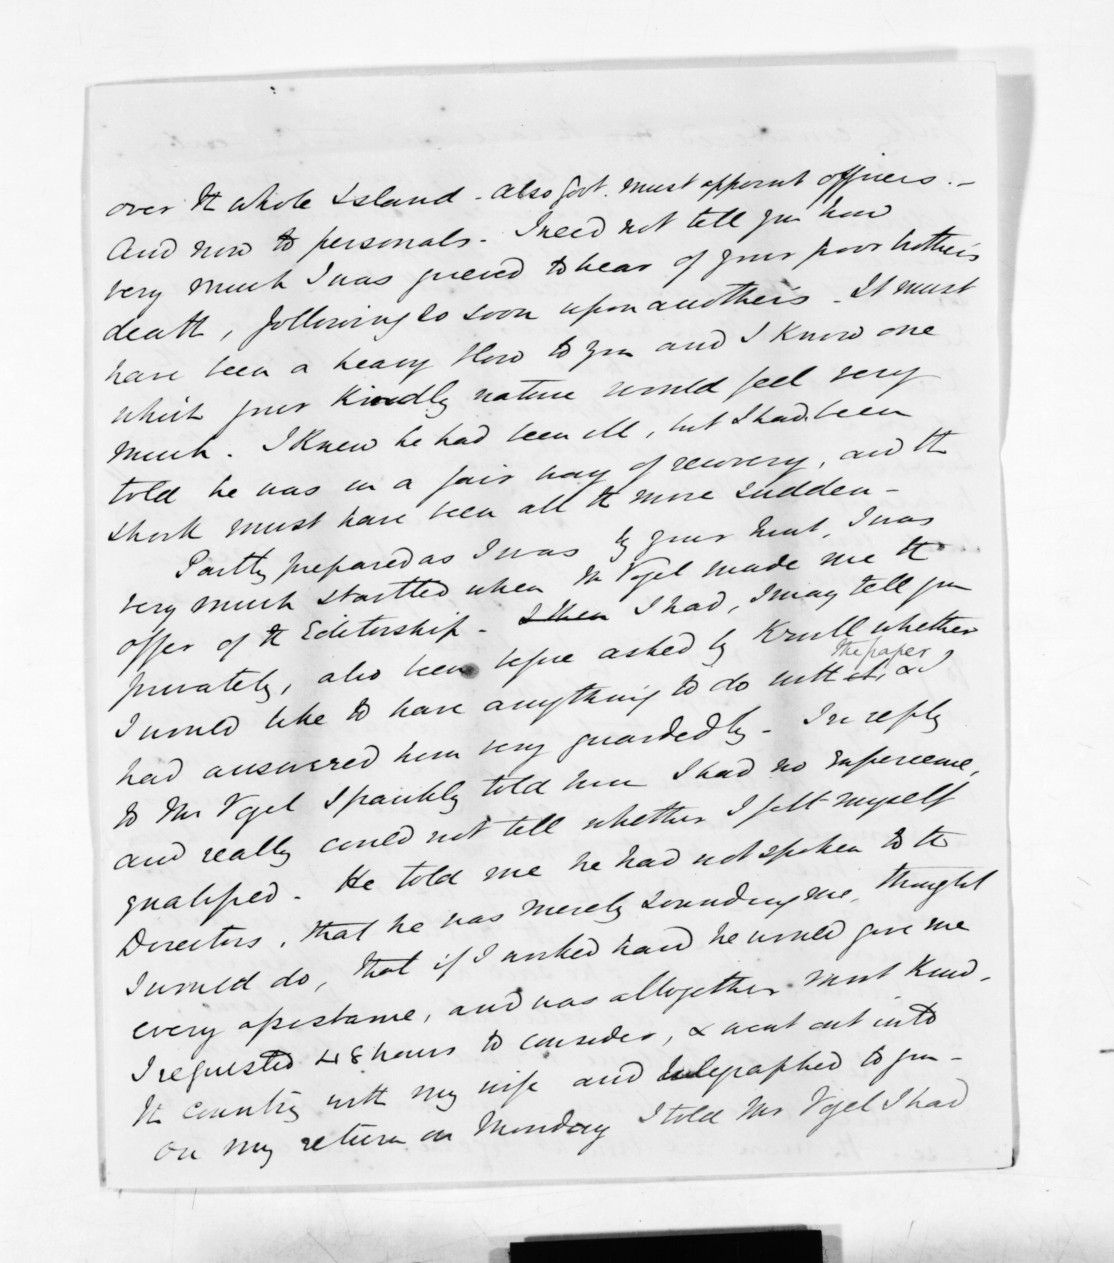 over the whole Island - also Govt. must appoint officers. -
And now to personals - I need not tell you how
very much I was grieved to hear of your poor brother's
death, following so soon upon another's - It must
have been a heavy blow to you and I know one
which your kindly nature would feel very
much. I knew he had been ill, but I had been
told he was in a fair way of recovery, and the
shock must have been all the more sudden -
Partly prepared as I was by your hint, I was
very much startled when Mr Vogel made me the
offer of the Editorship - I then I had, I may tell you
privately, also been before asked by Krull whether
the paper
I would like to have anything to do with it, & I
had answered him very guardedly - In reply
to Mr Vogel I frankly told him I had no experience,
and really could not tell whether I felt myself
qualified. He told me he had not spoken to the
Directors, that he was merely sounding me, thought
I would do, that if I worked hard he would give me
every assistance, and was altogether most kind.
I requested 48 hours to consider, & went out into
the country with my wife and telegraphed to you -
On my return on Monday I told Mr Vogel I had